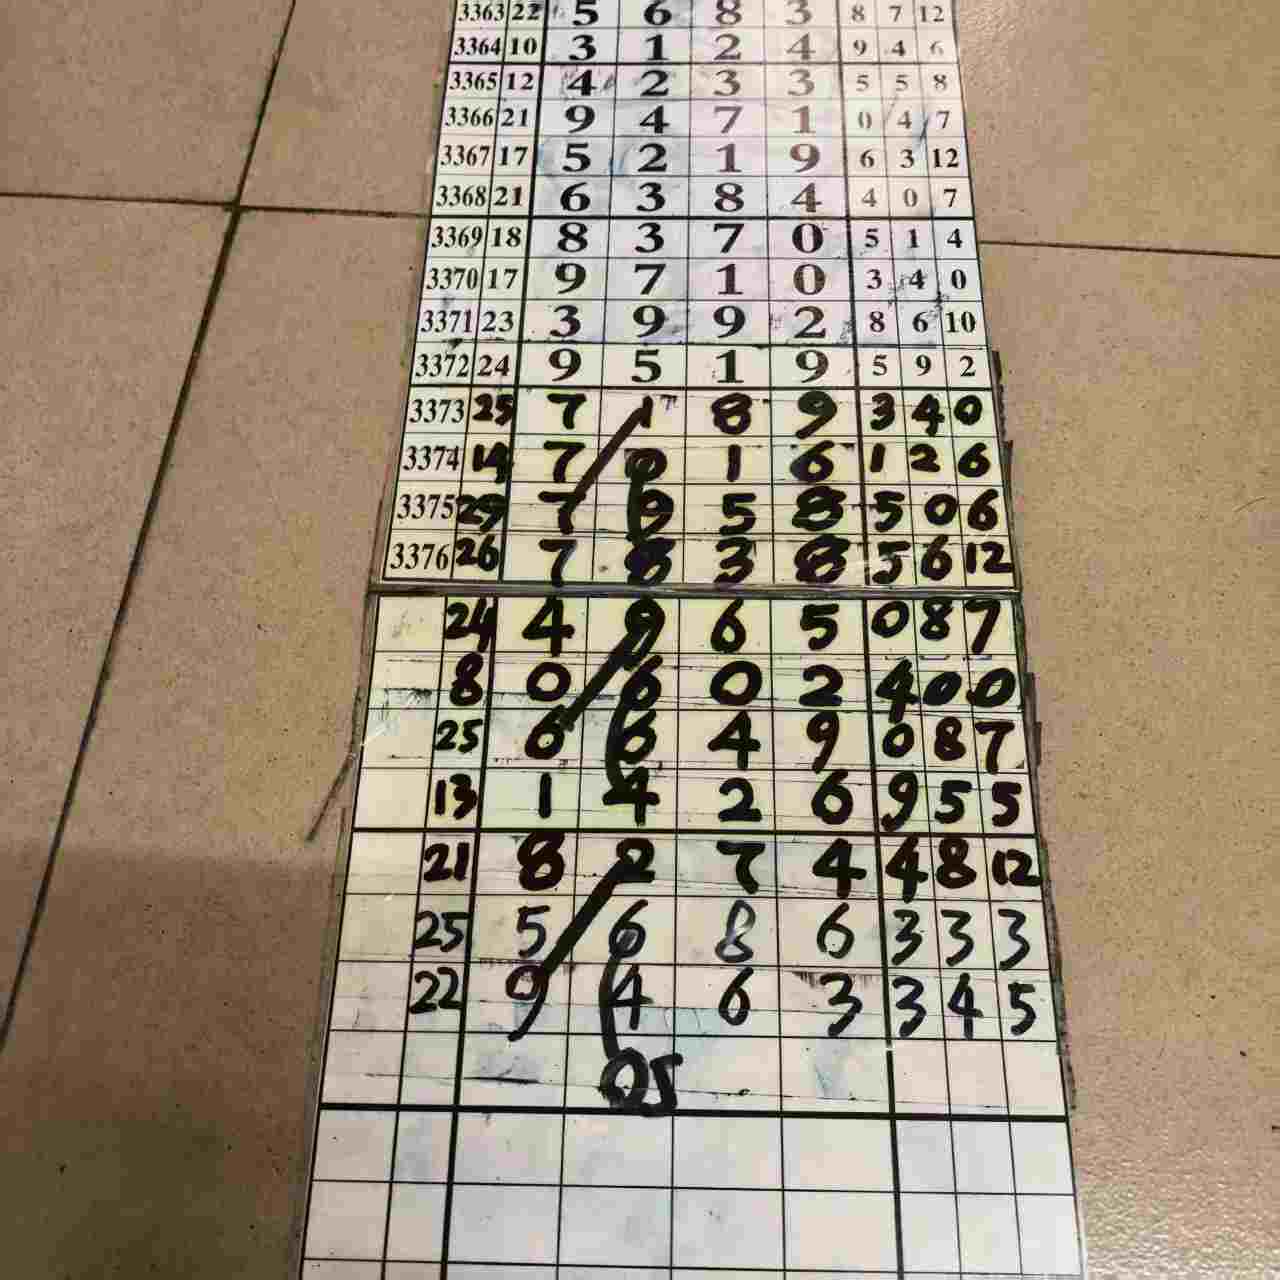 3363 22 5 6 8 3 8 7 12
3364 10 3 1 2 4 9 4 6
3365 12 4 2 3 3 5 5 8
3366 21 9 4 7 1 0 4 7
3367 17 5 2 1 9 6 3 12
3368 21 6 3 8 4 4 0 7
3369 18 8 3 7 0 5 1 4
3370 17 9 7 1 0 3 4 0
3371 23 3 9 9 2 8 6 10
3372 24 9 5 1 9 5 9 2
3373 25 7 1 8 9 3 4 0
3374 14 7 0 1 6 1 2 6
3375 29 7 9 5 8 5 0 6
3376 26 7 8 3 8 5 6 12
24 4 9 6 5 0 8 7
8 0 6 0 2 4 0 0
25 6 6 4 9 0 8 7
13 1 4 2 6 9 5 5
21 8 2 7 4 4 8 12
25 5 6 8 6 3 3 3
22 9 4 6 3 3 4 5
05